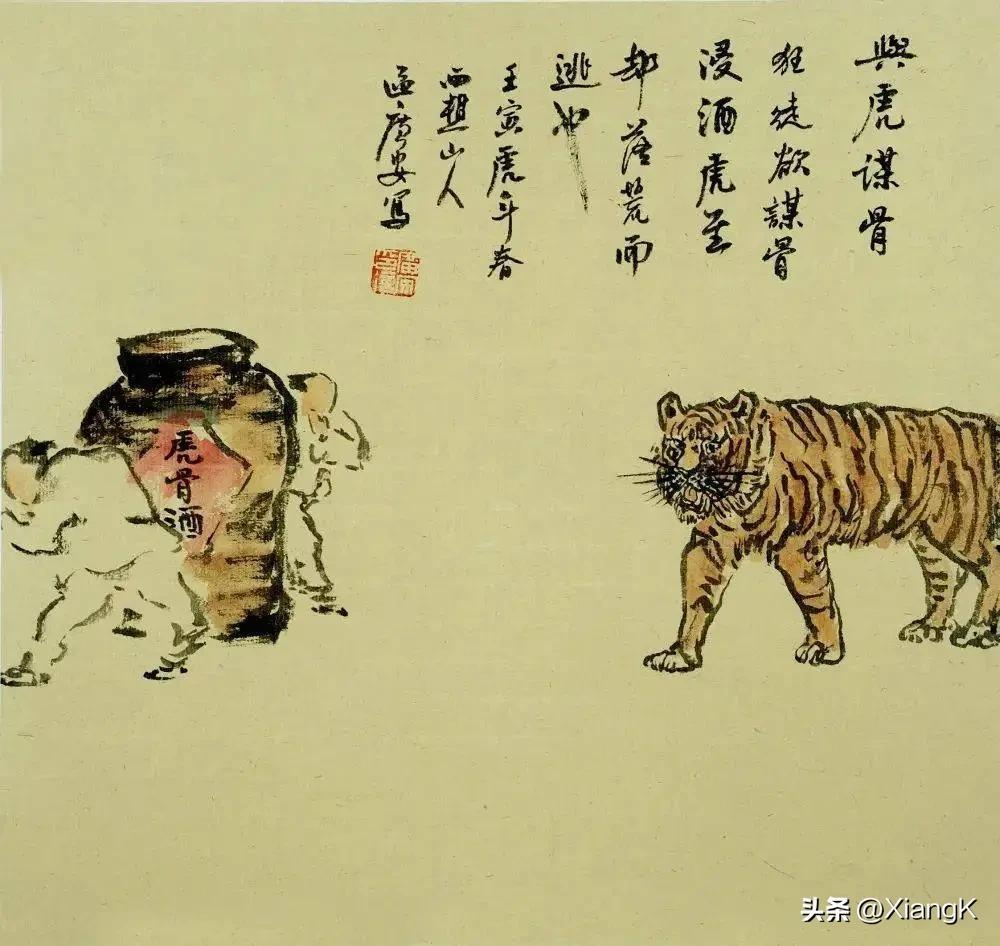 與虎谋骨
狂徒欲謀骨
浸酒虎至
却落荒而
逃也
壬寅虎年春
西樵山人
區广安写
虎骨酒
头条 @XiangK